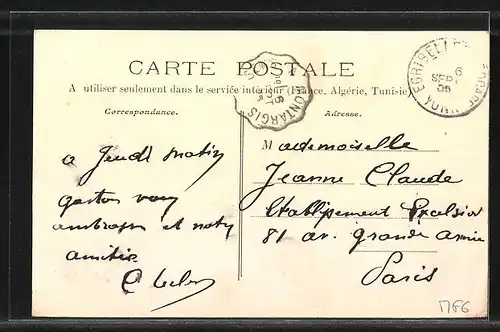 CARTE POSTALE
A utiliser seulement dans le service intérieur (France, Algérie, Tunisie)
Correspondance.
Adresse.
EGRISELLES
6
SEPT
05
YONNE
MONTARGIS
a Jeudi matin
gaston vous
embrasse et
amitié
Mademoiselle
Jeanne Claude
Etablissement Excelsior
81 av. grande armée
Paris